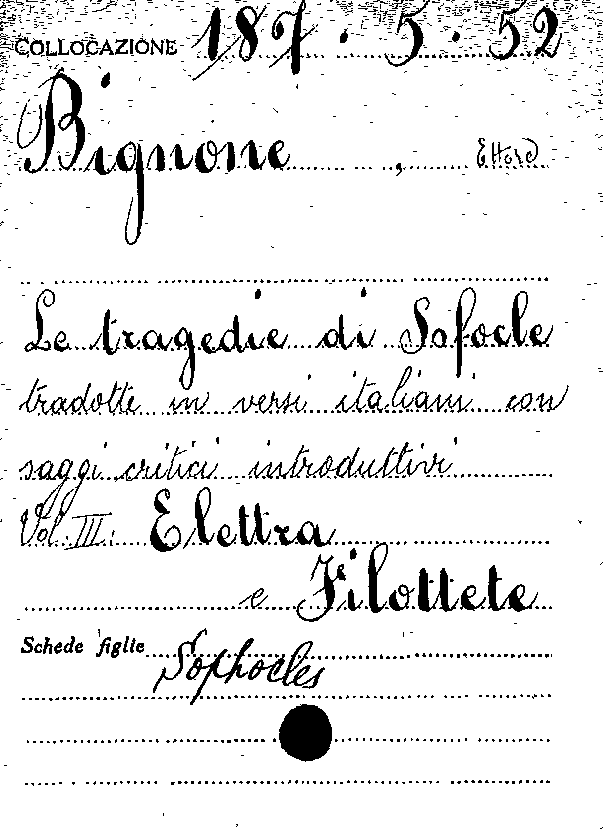 COLLOCAZIONE 187.5.52
Bignone, Ettore
Le tragedie di Sofocle
tradotte in versi italiani con
saggi critici introduttivi
Vol. III. Elettra
e Filottete
Schede figlie Sophocles